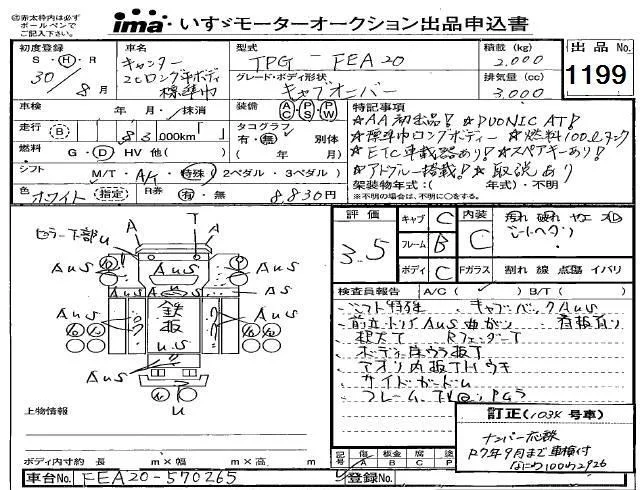 ima・いすゞモーターオークション出品申込書
㊟赤太枠内は必ず
ボールペンで
ご記入下さい。
初度登録 車名 型式 積載(kg) 出品No.
S・H・R キャンター TPG - FEA20 2,000 1199
30/8月 グレード・ボディ形状 排気量(cc)
標準巾 キャブオーバー 3,000
車検 年 月 / 抹消 装備 AC・PS・PW 特記事項
☆AA初出品! ☆DUONIC AT!
走行 B 83,000km 「 」 タコグラフ ☆標準巾ロングボディー ☆燃料100Lタンク
有・無 別体 ☆ETC車載器あり! ☆スペアキーあり!
燃料 G・D HV 他( ) ( 年 月) ☆アドブルー搭載! ☆取説あり
シフト M/T・A/T・特殊(2ペダル・3ペダル) 架装物年式:( 年式)・不明
※不明の場合は、不明に○をする。
色 ホワイト (指定) R券 有・無 8,830円
評価 キャブ C 内装
3.5 フレーム B C
ボディ C Fガラス 割れ 線 点傷 イバリ
セラー下部u A T A
AuS AuS AuS
AuS AuS
鉄板
u.S
AuS
u
検査員報告 A/C( ) B/T( )
シフト特殊 キャブバックAuS
根太T RフェンダーT
アオリ内板THウキ
サイドガードu
上物情報
訂正(103K 号車)
ナンバー応談
R7年9月まで車検付
なにわ100わ2926
ボディ内寸約 長 m×幅 m×高 m
記号 傷 A 板金 B 腐 C 塗 P
車台No. FEA20-570265 登録No.